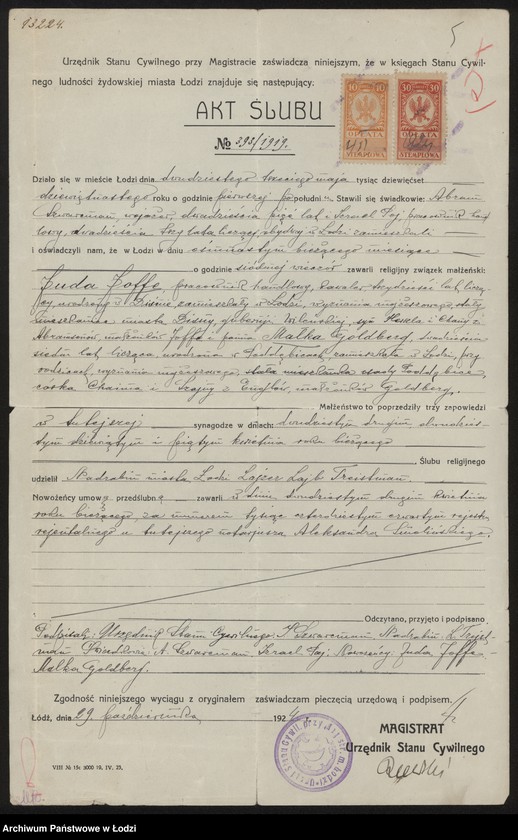 13224.
5
Urzędnik Stanu Cywilnego przy Magistracie zaświadcza niniejszym, że w księgach Stanu Cywil-
nego ludności żydowskiej miasta Łodzi znajduje się następujący:
AKT ŚLUBU
№ 393/1919.
10 10
OPŁATA
STEMPLOWA
30 30
OPŁATA
STEMPLOWA
Działo się w mieście Łodzi dnia dwudziestego trzeciego maja tysiąc dziewięćset
dziewiętnastego roku o godzinie pierwszej po południu. Stawili się świadkowie: Abram
Szwarcman, dwadzieścia pięć lat i Izrael Faj, pracownik
dwadzieścia trzy lata liczący, obydwaj w Łodzi zamieszkali
i oświadczyli nam, że w Łodzi w dniu osiemnastym bieżącego miesiąca
o godzinie siódmej wieczór zawarli religijny związek małżeński:
Juda Joffe, pracownik handlowy, kawaler, trzydzieści lat liczą-
cy, urodzony w Dziśnie, zamieszkały w Łodzi, wyznania mojżeszowego, stały
mieszkaniec miasta Dzisny, gubernji Wileńskiej, syn i z
Abramsonów, małżonków Joffe i panna Malka Goldberg, dwadzieścia
siedm lat licząca, urodzona w Poddębicach, zamieszkała w Łodzi, przy
rodzicach, wyznania mojżeszowego, stała mieszkanka osady Poddębice,
córka Chaima i z małżonków Goldberg.
Małżeństwo to poprzedziły trzy zapowiedzi
w tutejszej synagodze w dniach: dwudziestym drugim, dwudzies-
tym dziewiątym i piątym kwietnia roku bieżącego
Ślubu religijnego
udzielił Nadrabin miasta Łodzi Lajzer Lajb Treistman.
Nowożeńcy umowę przedślubną zawarli w dniu dwudziestym drugim kwietnia
roku bieżącego, za numerem tysiąc czterdziestym czwartym rejestru
rejentalnego u tutejszego notarjusza Aleksandra Smolińskiego.
Odczytano, przyjęto i podpisano
Podpisali: Urzędnik Stanu Cywilnego Szwarcman, Nadrabin: L. Trejst-
man Świadkowie A. Szwarcman, Izrael Faj. Nowożeńcy: Juda Joffe -
Malka Goldberg.
Zgodność niniejszego wyciągu z oryginałem zaświadczam pieczęcią urzędową i podpisem.
Łódź, dnia 29 października 1924
MAGISTRAT
Urzędnik Stanu Cywilnego
VIII № 15: 5000 18. IV. 23.
Archiwum Państwowe w Łodzi